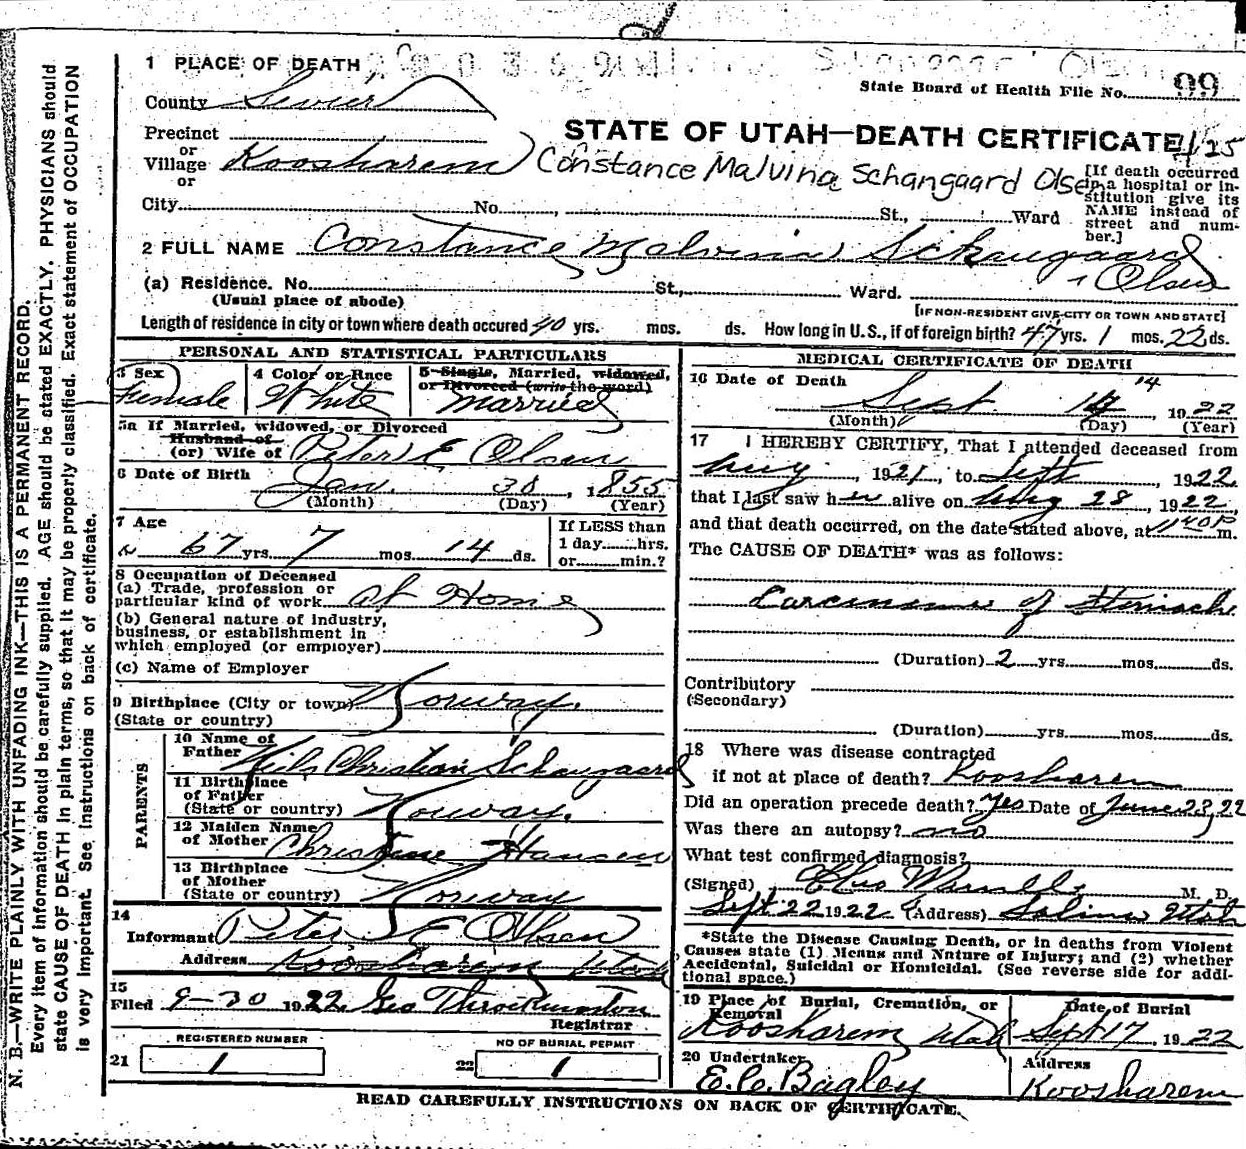 1 PLACE OF DEATH
State Board of Health File No. 99
County Sevier
STATE OF UTAH—DEATH CERTIFICATE
Precinct
or
Village Koosharem
Constance Malvina Schangaard Olsen
or
City No. , St., Ward
[If death occurred
in a hospital or in-
stitution give its
NAME instead of
street and num-
ber.]
2 FULL NAME Constance Malvina Skaugaard Olsen
(a) Residence. No. St., Ward.
(Usual place of abode) [IF NON-RESIDENT GIVE CITY OR TOWN AND STATE]
Length of residence in city or town where death occured 40 yrs. mos. ds. How long in U.S., if of foreign birth? 47 yrs. 1 mos. 22 ds.
PERSONAL AND STATISTICAL PARTICULARS
3 Sex Female
4 Color or Race White
5 Single, Married, widowed,
or Divorced (write the word)
Married
5a If Married, widowed, or Divorced
Husband of
(or) Wife of Peter E Olsen
6 Date of Birth Jan. 30, 1855
(Month) (Day) (Year)
7 Age
67 yrs. 7 mos. 14 ds.
If LESS than
1 day hrs.
or min.?
8 Occupation of Deceased
(a) Trade, profession or
particular kind of work at Home
(b) General nature of industry,
business, or establishment in
which employed (or employer)
(c) Name of Employer
9 Birthplace (City or town) Norway.
(State or country)
PARENTS
10 Name of
Father Niels Christian Skaugaard
11 Birthplace
of Father
(State or country) Norway.
12 Maiden Name
of Mother Christine Hansen
13 Birthplace
of Mother
(State or country) Norway
14
Informant Peter E Olsen
Address Koosharem Utah
15
Filed 9-20 1922 Geo Throckmorton
Registrar
REGISTERED NUMBER
21 1
NO OF BURIAL PERMIT
22 1
MEDICAL CERTIFICATE OF DEATH
16 Date of Death
Sept 14 14, 1922
(Month) (Day) (Year)
17 I HEREBY CERTIFY, That I attended deceased from
Aug, 1921, to Sept, 1922,
that I last saw her alive on Aug 28, 1922,
and that death occurred, on the date stated above, at 1140P m.
The CAUSE OF DEATH* was as follows:
Carcinoma of Stomach
(Duration) 2 yrs. mos. ds.
Contributory
(Secondary)
(Duration) yrs. mos. ds.
18 Where was disease contracted
if not at place of death? Koosharem
Did an operation precede death? Yes Date of June 23, 22
Was there an autopsy? no
What test confirmed diagnosis?
(Signed) M. D.
Sept 22 1922 (Address) Salina Utah
*State the Disease Causing Death, or in deaths from Violent
Causes state (1) Means and Nature of Injury; and (2) whether
Accidental, Suicidal or Homicidal. (See reverse side for addi-
tional space.)
19 Place of Burial, Cremation, or
Removal
Koosharem Utah
Date of Burial
Sept 17, 1922
20 Undertaker
E. C. Bagley
Address
Koosharem
READ CAREFULLY INSTRUCTIONS ON BACK OF CERTIFICATE.
N. B.—WRITE PLAINLY WITH UNFADING INK—THIS IS A PERMANENT RECORD.
Every item of information should be carefully supplied. AGE should be stated EXACTLY. PHYSICIANS should
state CAUSE OF DEATH in plain terms, so that it may be properly classified. Exact statement of OCCUPATION
is very important. See instructions on back of certificate.